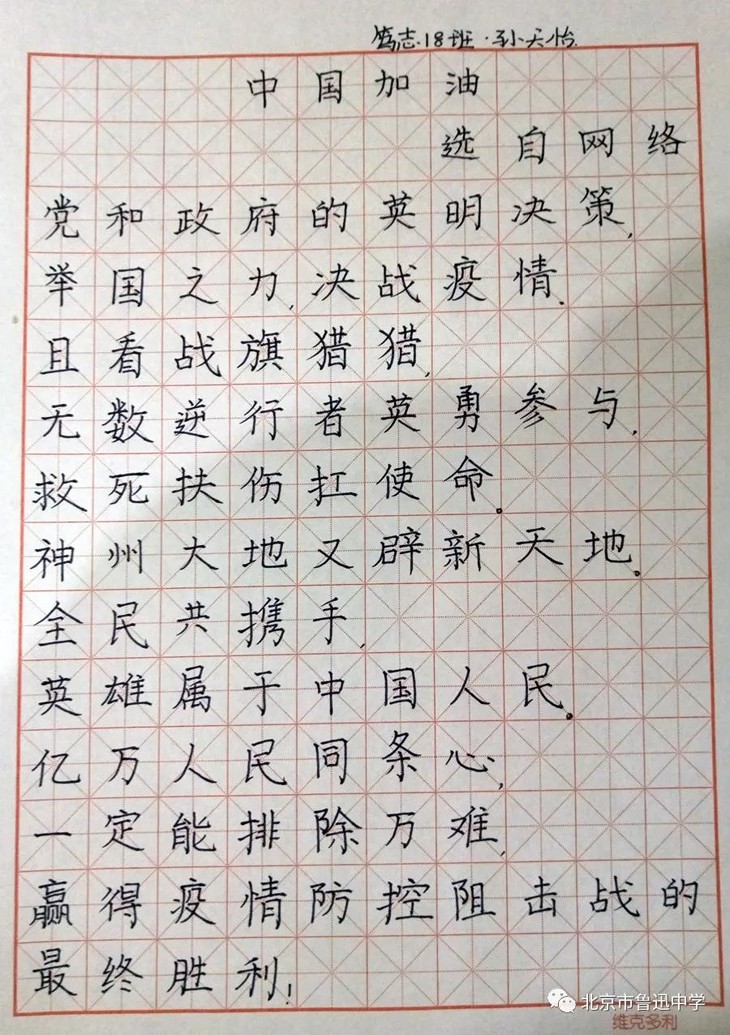 笃志18班·孙天怡
中国加油
选自网络
党和政府的英明决策,
举国之力,决战疫情.
且看战旗猎猎,
无数逆行者英勇参与,
救死扶伤扛使命。
神州大地又辟新天地。
全民共携手,
英雄属于中国人民。
亿万人民同条心,
一定能排除万难,
赢得疫情防控阻击战的
最终胜利!
北京市鲁迅中学
维克多利